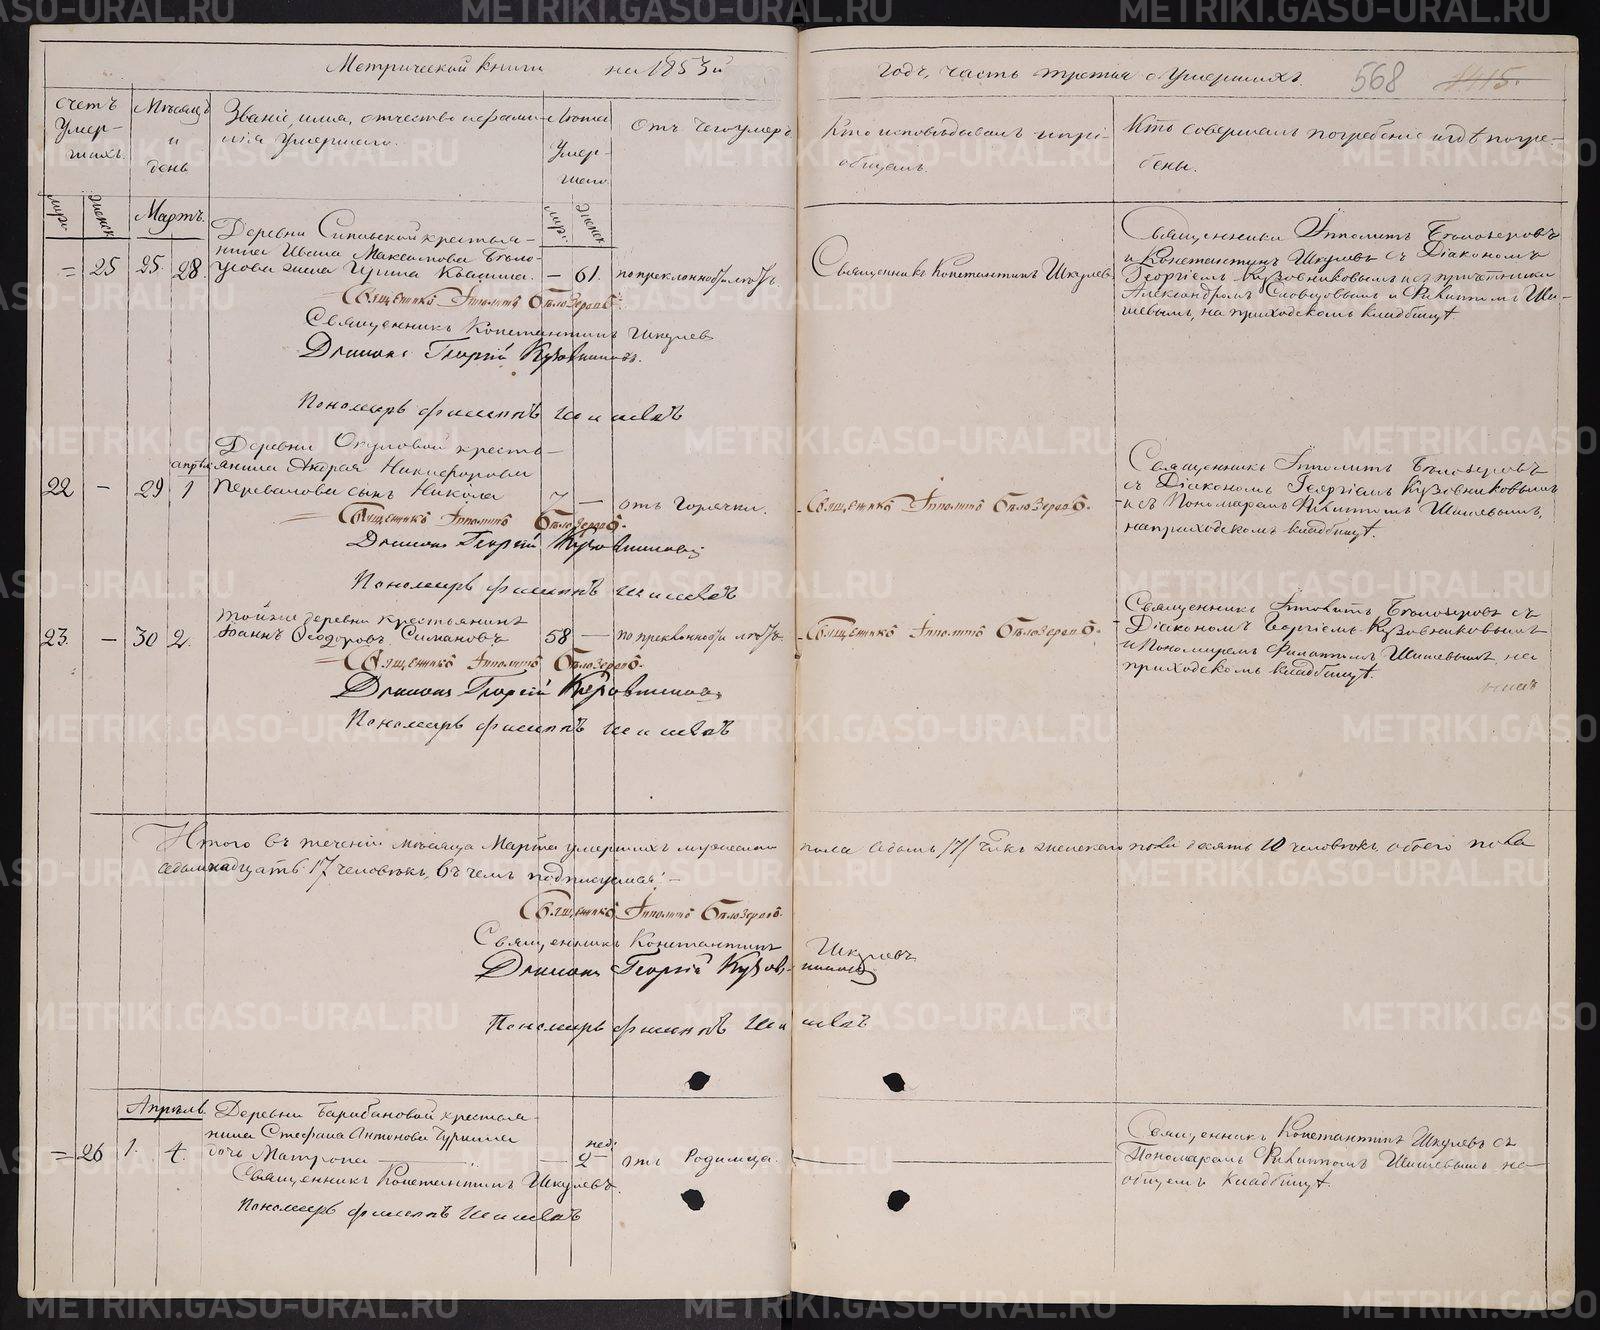 Метрической книги на 1853й
годъ, часть третья о умершихъ.
568
1415.
счетъ умер-шихъ.
Мѣсяцъ и день
Званіе, имя, отчество и фами-
лія умершаго.
Лѣта умер-шаго.
отъ чего умеръ
Кто исповѣдывалъ и прі-
общалъ.
Кто совершалъ погребеніе и гдѣ погре-
бены.
муж. женск
Мартъ.
муж. женск
Деревни крестья-
нина Ивана Максимова Бѣло-
жена Ирина
= 25 25. 28. — 61.
Священникъ Константинъ Шкулевъ
Священники Ипполитъ Бѣлозеровъ
и Константинъ Шкулевъ съ Діакономъ
Георгіемъ Кузовниковымъ и съ причетники
Александромъ Словцовымъ и Филиппомъ Ши-
шевымъ, на приходскомъ кладбищѣ.
Священникъ Ипполитъ Бѣлозеровъ.
Священникъ Константинъ Шкулевъ
Діаконъ Георгій Кузовниковъ.
Пономарь Филиппъ Шишевъ
Деревни Окуловой кресть-
янина Андрея Никифорова
Перевалова сынъ Никола
22 — 29 апрѣл 1 7 — отъ горячки.
Священникъ Ипполитъ Бѣлозеровъ.
Священникъ Ипполитъ Бѣлозеровъ
съ Діакономъ Георгіемъ Кузовниковымъ
и съ Пономаремъ Филиппомъ Шишевымъ,
на приходскомъ кладбищѣ.
Священникъ Ипполитъ Бѣлозеровъ.
Діаконъ Георгій Кузовниковъ
Пономарь Филиппъ Шишевъ
Той же деревни крестьянинъ
Іоаннъ Ѳеодоровъ Силановъ
23. — 30 2. 58 —
Священникъ Ипполитъ Бѣлозеровъ.
Священникъ Ипполитъ Бѣлозеровъ съ
Діакономъ Георгіемъ Кузовниковымъ
и Пономаремъ Филиппомъ Шишевымъ, на
приходскомъ кладбищѣ.
Священникъ Ипполитъ Бѣлозеровъ.
Діаконъ Георгій Кузовниковъ
Пономарь Филиппъ Шишевъ
Итого въ теченіи мѣсяца Марта умершихъ мужеска пола седмь /7/ женскаго пола десять 10 человѣкъ, обоего пола
седьмнадцать 17 человѣкъ, въ чемъ подписуемся: —
Священникъ Ипполитъ Бѣлозеровъ.
Священникъ Константинъ Шкулевъ
Діаконъ Георгій Кузовниковъ
Пономарь Филиппъ Шишевъ
Апрѣль.
Деревни Барабановой крестья-
нина Стефана Антонова
дочь Матрона
= 26 1. 4. — нед: 2 отъ Родимца.
Священникъ Константинъ Шкулевъ съ
Пономаремъ Филиппомъ Шишевымъ на
общемъ кладбищѣ.
Священникъ Константинъ Шкулевъ.
Пономарь Филиппъ Шишевъ
METRIKI.GASO-URAL.RU